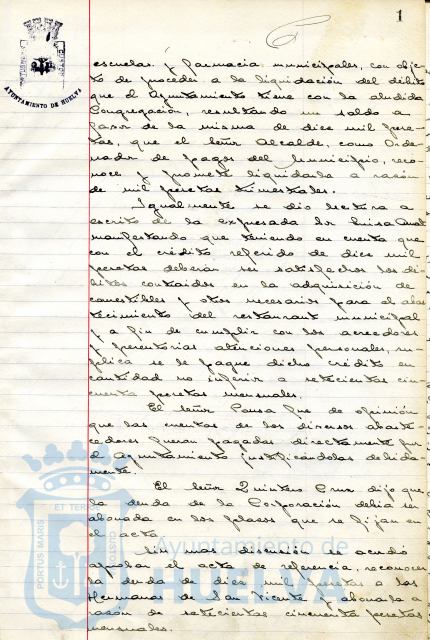 1
AYUNTAMIENTO DE HUELVA
escuelas y farmacia municipales, con obje-
to de proceder a la liquidación del débito
que el Ayuntamiento tiene con la aludida
Congregación, resultando un saldo a
favor de la misma de diez mil pese-
tas, que el Señor Alcalde, como Orde-
nador de pagos del Municipio, reco-
noce y promete liquidarla a razón
de mil pesetas trimestrales.
Igualmente se dio lectura a
escrito de la expresada Sor Luisa
manifestando que teniendo en cuenta que
con el crédito referido de diez mil
pesetas deberan ser satisfechos los dé-
bitos contraidos en la adquisición de
comestibles y otros necesarios para el abas-
tecimiento del restaurant municipal
y a fin de cumplir con los acreedores
y perentorias atenciones personales, su-
plica se le pague dicho crédito en
cantidad no inferior a setecientas cin-
cuenta pesetas mensuales.
El Señor fue de opinión
que las cuentas de los diversos abaste-
cedores fueran pagadas directamente por
el Ayuntamiento justificándolas debida-
mente.
El Señor Quintero Cruz dijo que
la deuda de la Corporación debia ser
abonada en los plazos que se fijan en
el acta.
Sin mas discusión se acordó
aprobar el acta de referencia, reconocer
la deuda de diez mil pesetas a las
Hermanas de San Vicente y abonarla a
razón de setecientas cincuenta pesetas
mensuales.
PORTUS MARIS ET TERRAE CUSTODIA
Ayuntamiento de
HUELVA